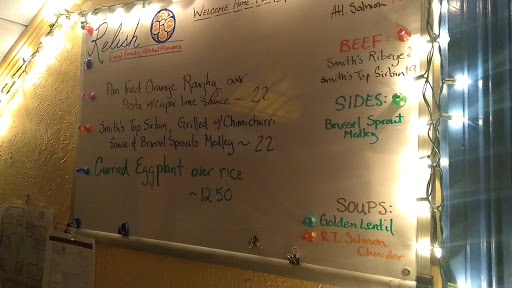 Relish
Local Foods, Global Flavours
Welcome Home,
Pan Fried Orange Roughy over
Pasta w/caper lime sauce ~ 22
Smith's Top Sirloin, Grilled w/Chimichurri
Sauce & Brussel Sprouts Medley ~ 22
Curried Eggplant over rice
~12.50
Atl. Salmon
BEEF:
Smith's Ribeye 2
Smith's Top Sirloin 19
SIDES:
Brussel Sprout
Medley
SOUPS:
Golden Lentil
R.I. Salmon
Chowder